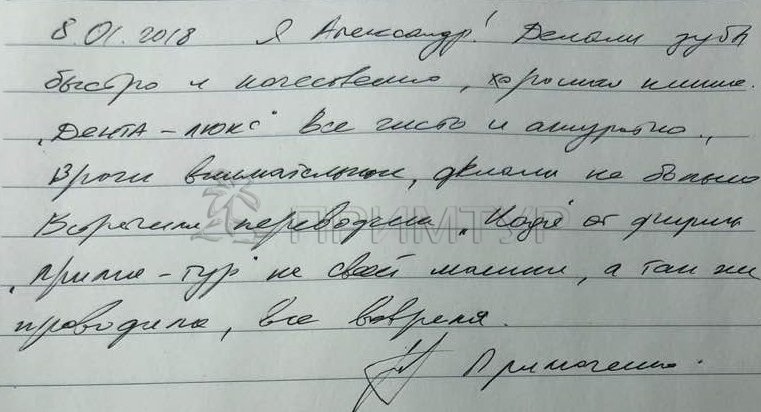 8.01.2018 Я Александр! Делали зубы
быстро и качественно, хорошая клиника.
"Дента-люкс" Все чисто и аккуратно.,
Врачи внимательные, делали не больно
Встречала переводчик от фирмы
ПРИМТУР
"Прима-тур" на своей машине, а так же
проводила, все вовремя.